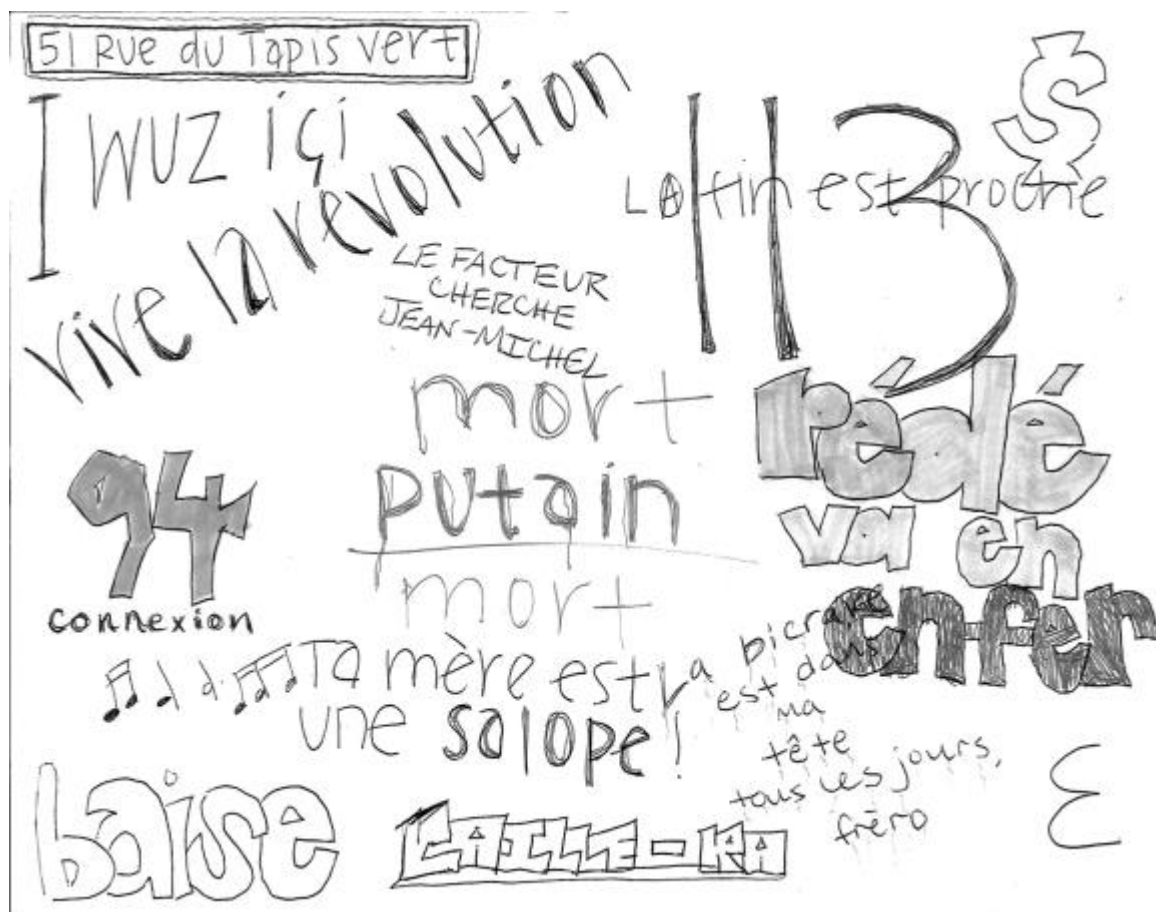 51 Rue du Tapis vert
I WUZ içi
vive la révolution
$
113
LA fin est proche
LE FACTEUR
CHERCHE
JEAN-MICHEL
mort
putain
mort
rédé
va en
enfer
94
connexion
Ta mère est
une salope!
La bicrave
est dans
ma
tête
tous les jours,
fréro
baise
CAILLE-RA
ε